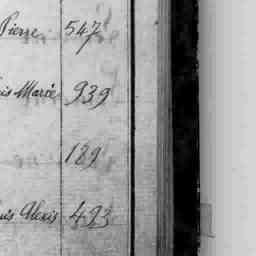 Pierre 547
is Marie 939
189
uis Alexis 493